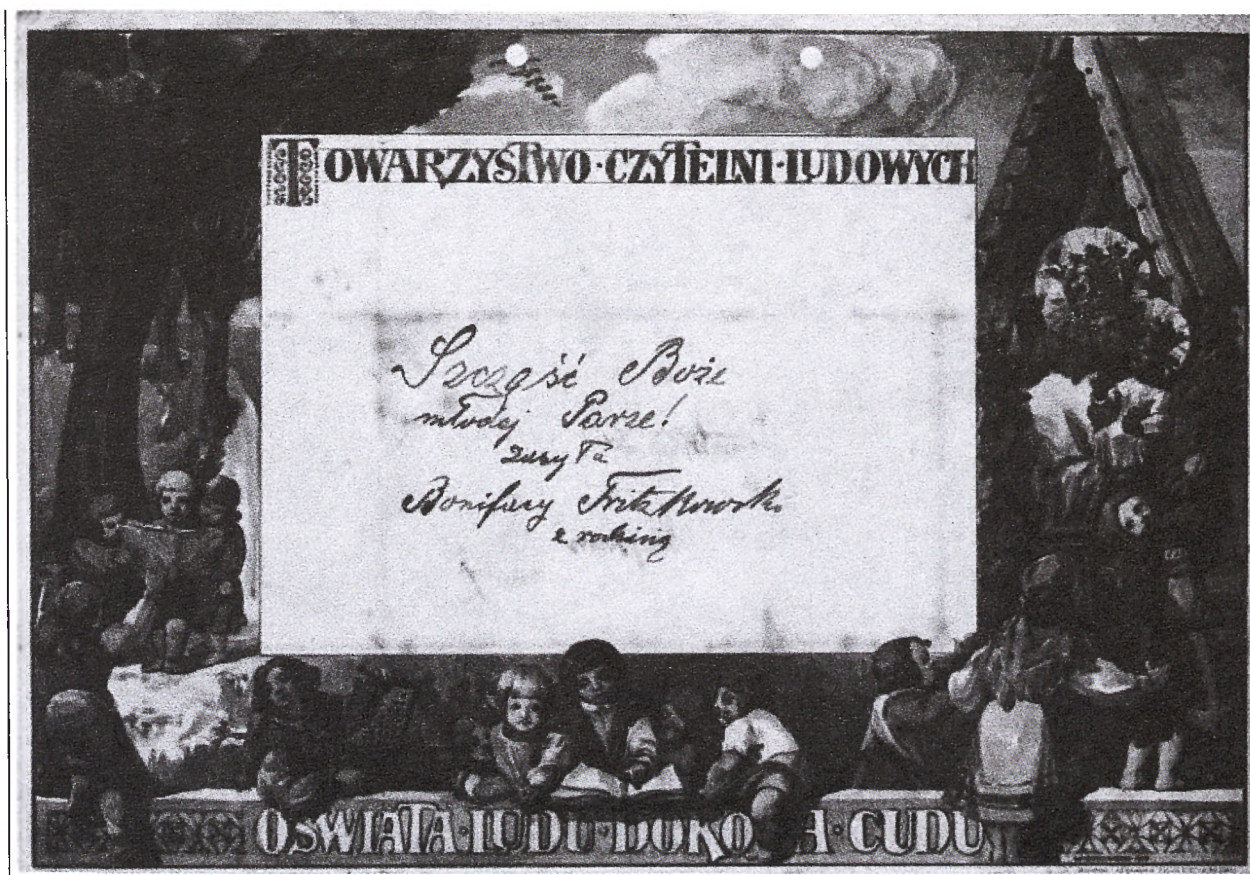 TOWARZYSTWO·CZYTELNI·LUDOWYCH
Szczęść Boże
młodej Parze!
Bonifacy
z rodziną
OŚWIATA·LUDU·DOKO A·CUDU